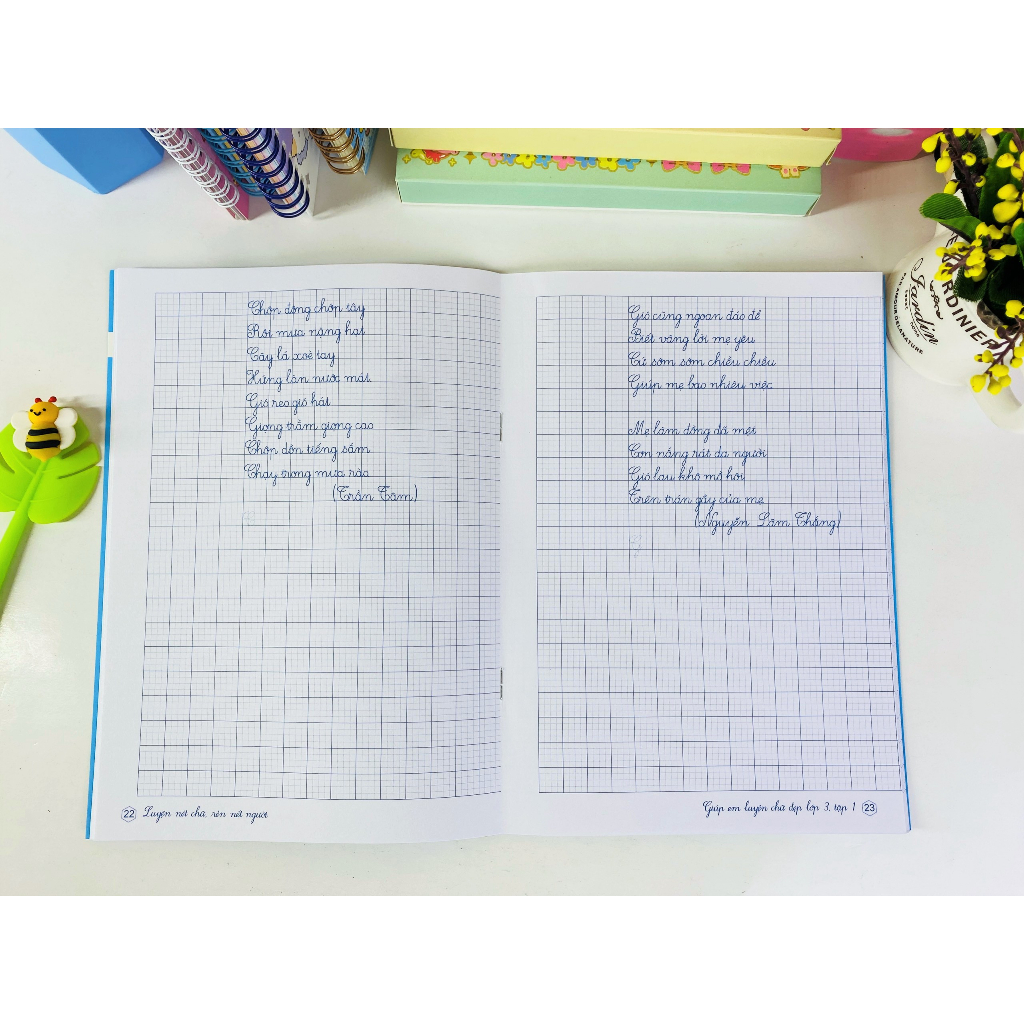 Chớp đông chớp tây
Rồi mưa nặng hạt
Cây lá xoè tay
Hứng làn nước mát.
Gió reo gió hát
Giọng trầm giọng cao
Chớp dồn tiếng sấm
Chạy trong mưa rào
(Trần Tâm)
22 Luyện nét chữ, rèn nết người
Gió cũng ngoan đáo để
Biết vâng lời mẹ yêu
Cứ sớm sớm chiều chiều
Giúp mẹ bao nhiêu việc
Mẹ làm đồng đã mệt
Con nắng rát da người
Gió lau khô mồ hôi
Trên trán gầy của mẹ
(Nguyễn Lãm Thắng)
Giúp em luyện chữ đẹp lớp 3, tập 1 23
Jardin
JARDINIER
PAR AMOUR DE LA NATURE